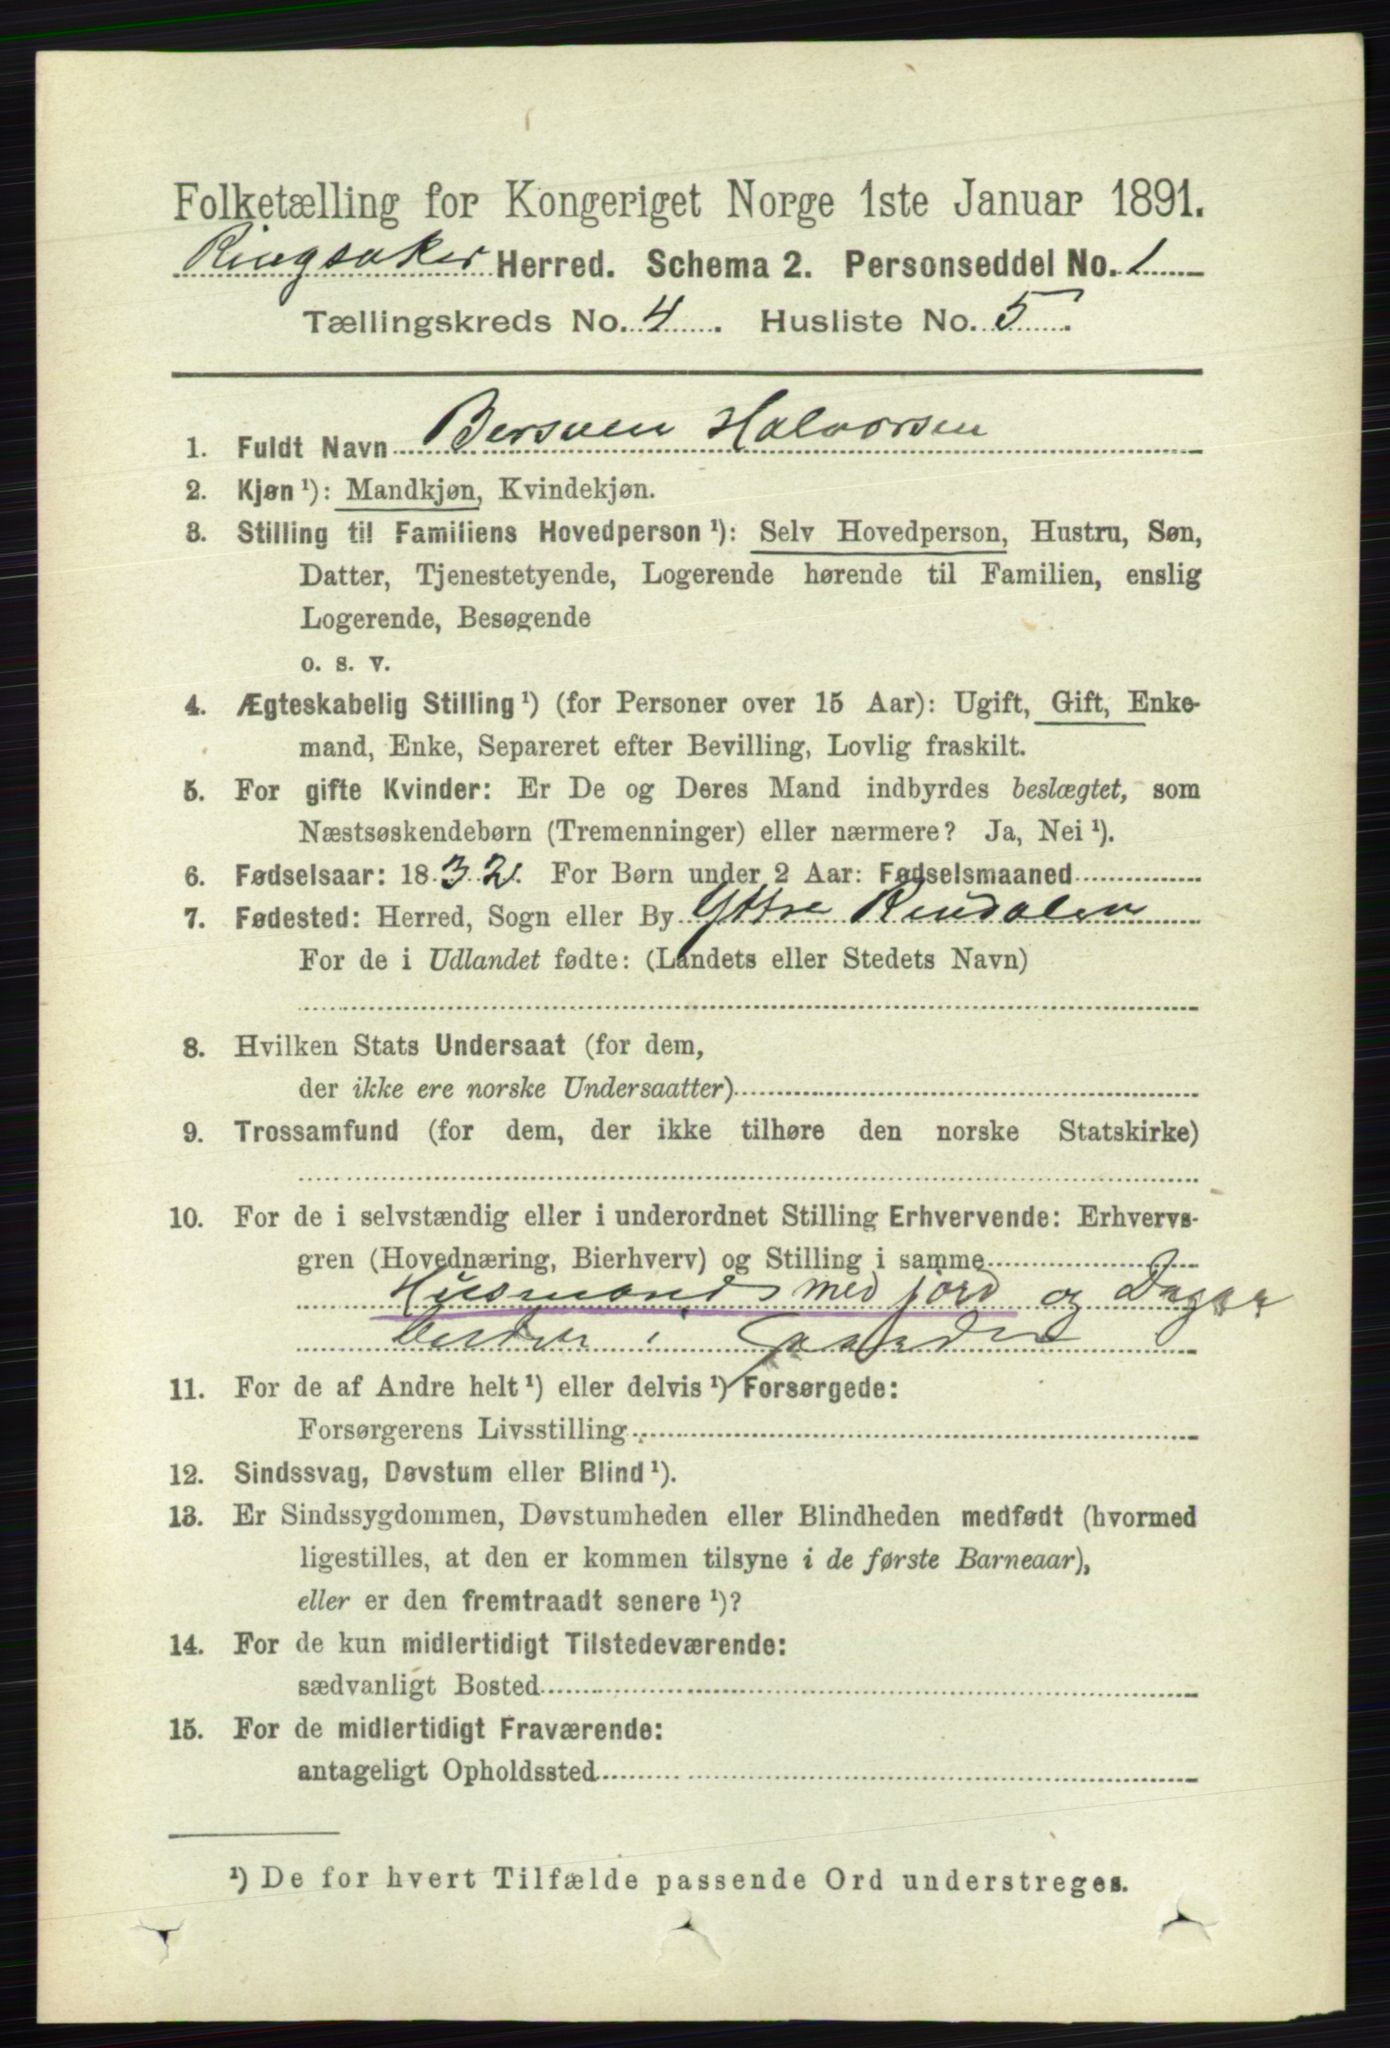 Folketælling for Kongeriget Norge 1ste Januar 1891.
Ringsaker Herred. Schema 2. Personseddel No. 1
Tællingskreds No. 4. Husliste No. 5.
1. Fuldt Navn Bersven Halvorsen
2. Kjøn ¹): Mandkjøn, Kvindekjøn.
3. Stilling til Familiens Hovedperson ¹): Selv Hovedperson, Hustru, Søn,
Datter, Tjenestetyende, Logerende hørende til Familien, enslig
Logerende, Besøgende
o. s. v.
4. Ægteskabelig Stilling ¹) (for Personer over 15 Aar): Ugift, Gift, Enke-
mand, Enke, Separeret efter Bevilling, Lovlig fraskilt.
5. For gifte Kvinder: Er De og Deres Mand indbyrdes beslægtet, som
Næstsøskendebørn (Tremenninger) eller nærmere? Ja, Nei ¹).
6. Fødselsaar: 1832. For Børn under 2 Aar: Fødselsmaaned
7. Fødested: Herred, Sogn eller By Yttre Rendalen
For de i Udlandet fødte: (Landets eller Stedets Navn)
8. Hvilken Stats Undersaat (for dem,
der ikke ere norske Undersaatter)
9. Trossamfund (for dem, der ikke tilhøre den norske Statskirke)
10. For de i selvstændig eller i underordnet Stilling Erhvervende: Erhvervs-
gren (Hovednæring, Bierhverv) og Stilling i samme
Husmand med jord og Dagar
beider i
11. For de af Andre helt ¹) eller delvis ¹) Forsørgede:
Forsørgerens Livsstilling
12. Sindssvag, Døvstum eller Blind ¹).
13. Er Sindssygdommen, Døvstumheden eller Blindheden medfødt (hvormed
ligestilles, at den er kommen tilsyne i de første Barneaar),
eller er den fremtraadt senere ¹)?
14. For de kun midlertidigt Tilstedeværende:
sædvanligt Bosted
15. For de midlertidigt Fraværende:
antageligt Opholdssted
¹) De for hvert Tilfælde passende Ord understreges.